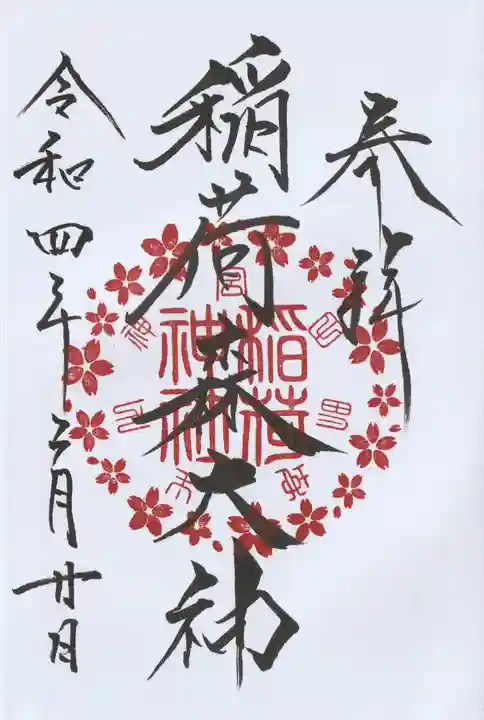 奉拝
稲荷森大神
令和四年二月廿日
稲荷
神社